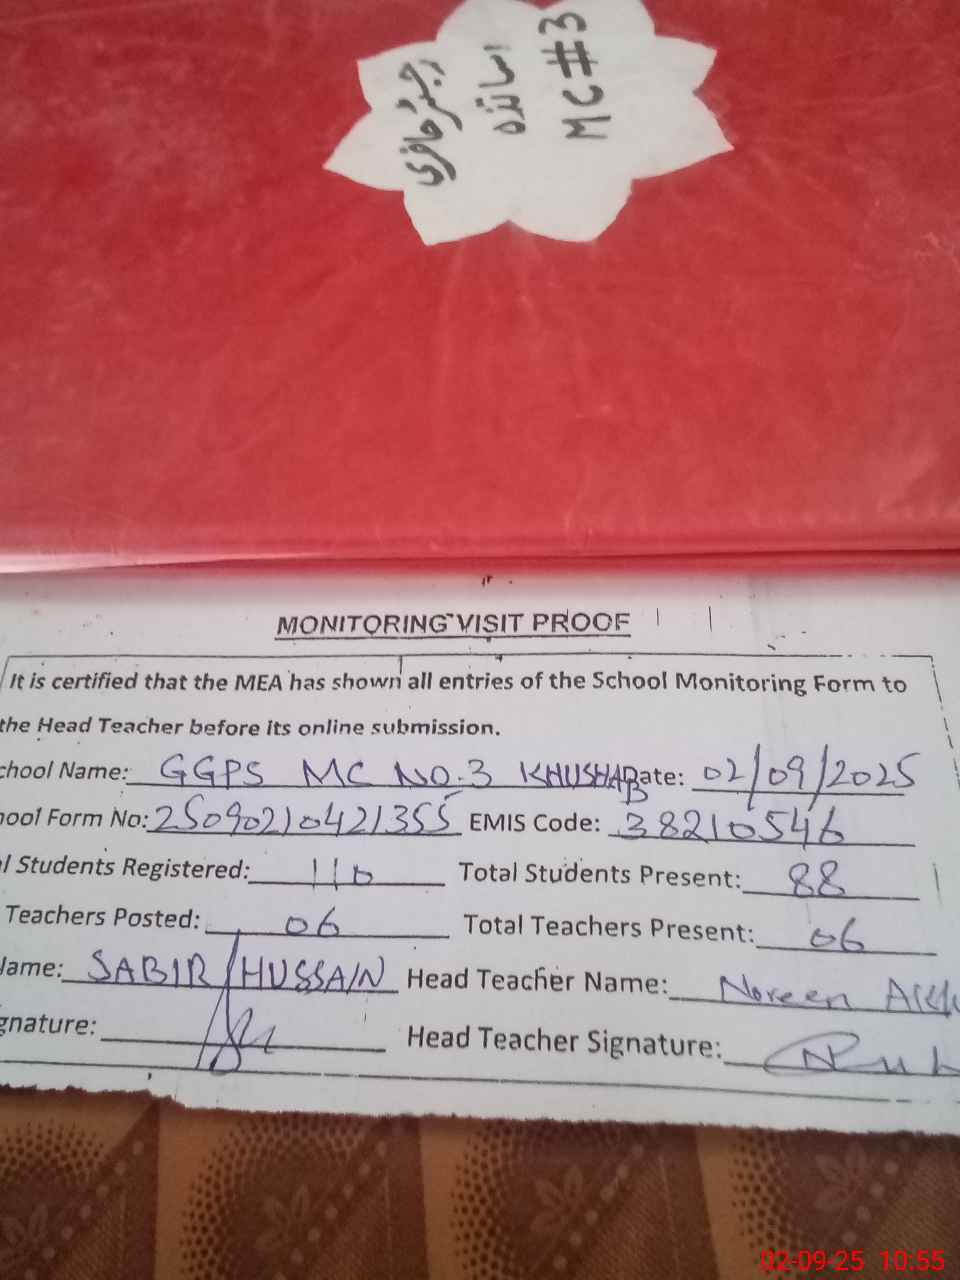 رجسٹر حاضری
اساتذہ
MC #3
MONITORING VISIT PROOF
It is certified that the MEA has shown all entries of the School Monitoring Form to
the Head Teacher before its online submission.
chool Name: GGPS MC NO.3 KHUSHAB Date: 02/09/2025
hool Form No: 25090210421355 EMIS Code: 38210546
l Students Registered: 110 Total Students Present: 88
Teachers Posted: 06 Total Teachers Present: 06
Name: SABIR HUSSAIN Head Teacher Name: Noreen
gnature: Head Teacher Signature:
02-09-25 10:55